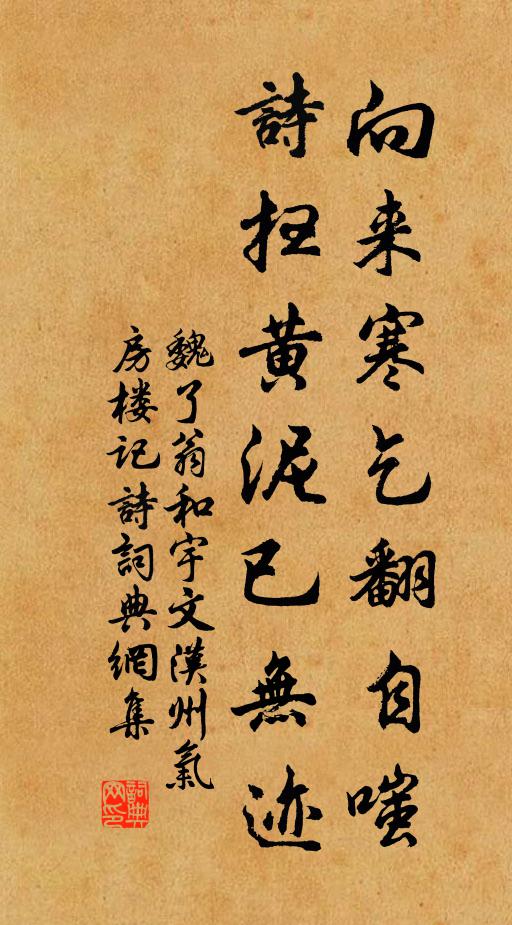 向来寒乞翻自嗤
詩扫黄泥已無迹
魏了翁和宇文漢州氣
房楼记詩詞典網集
詞典
网印